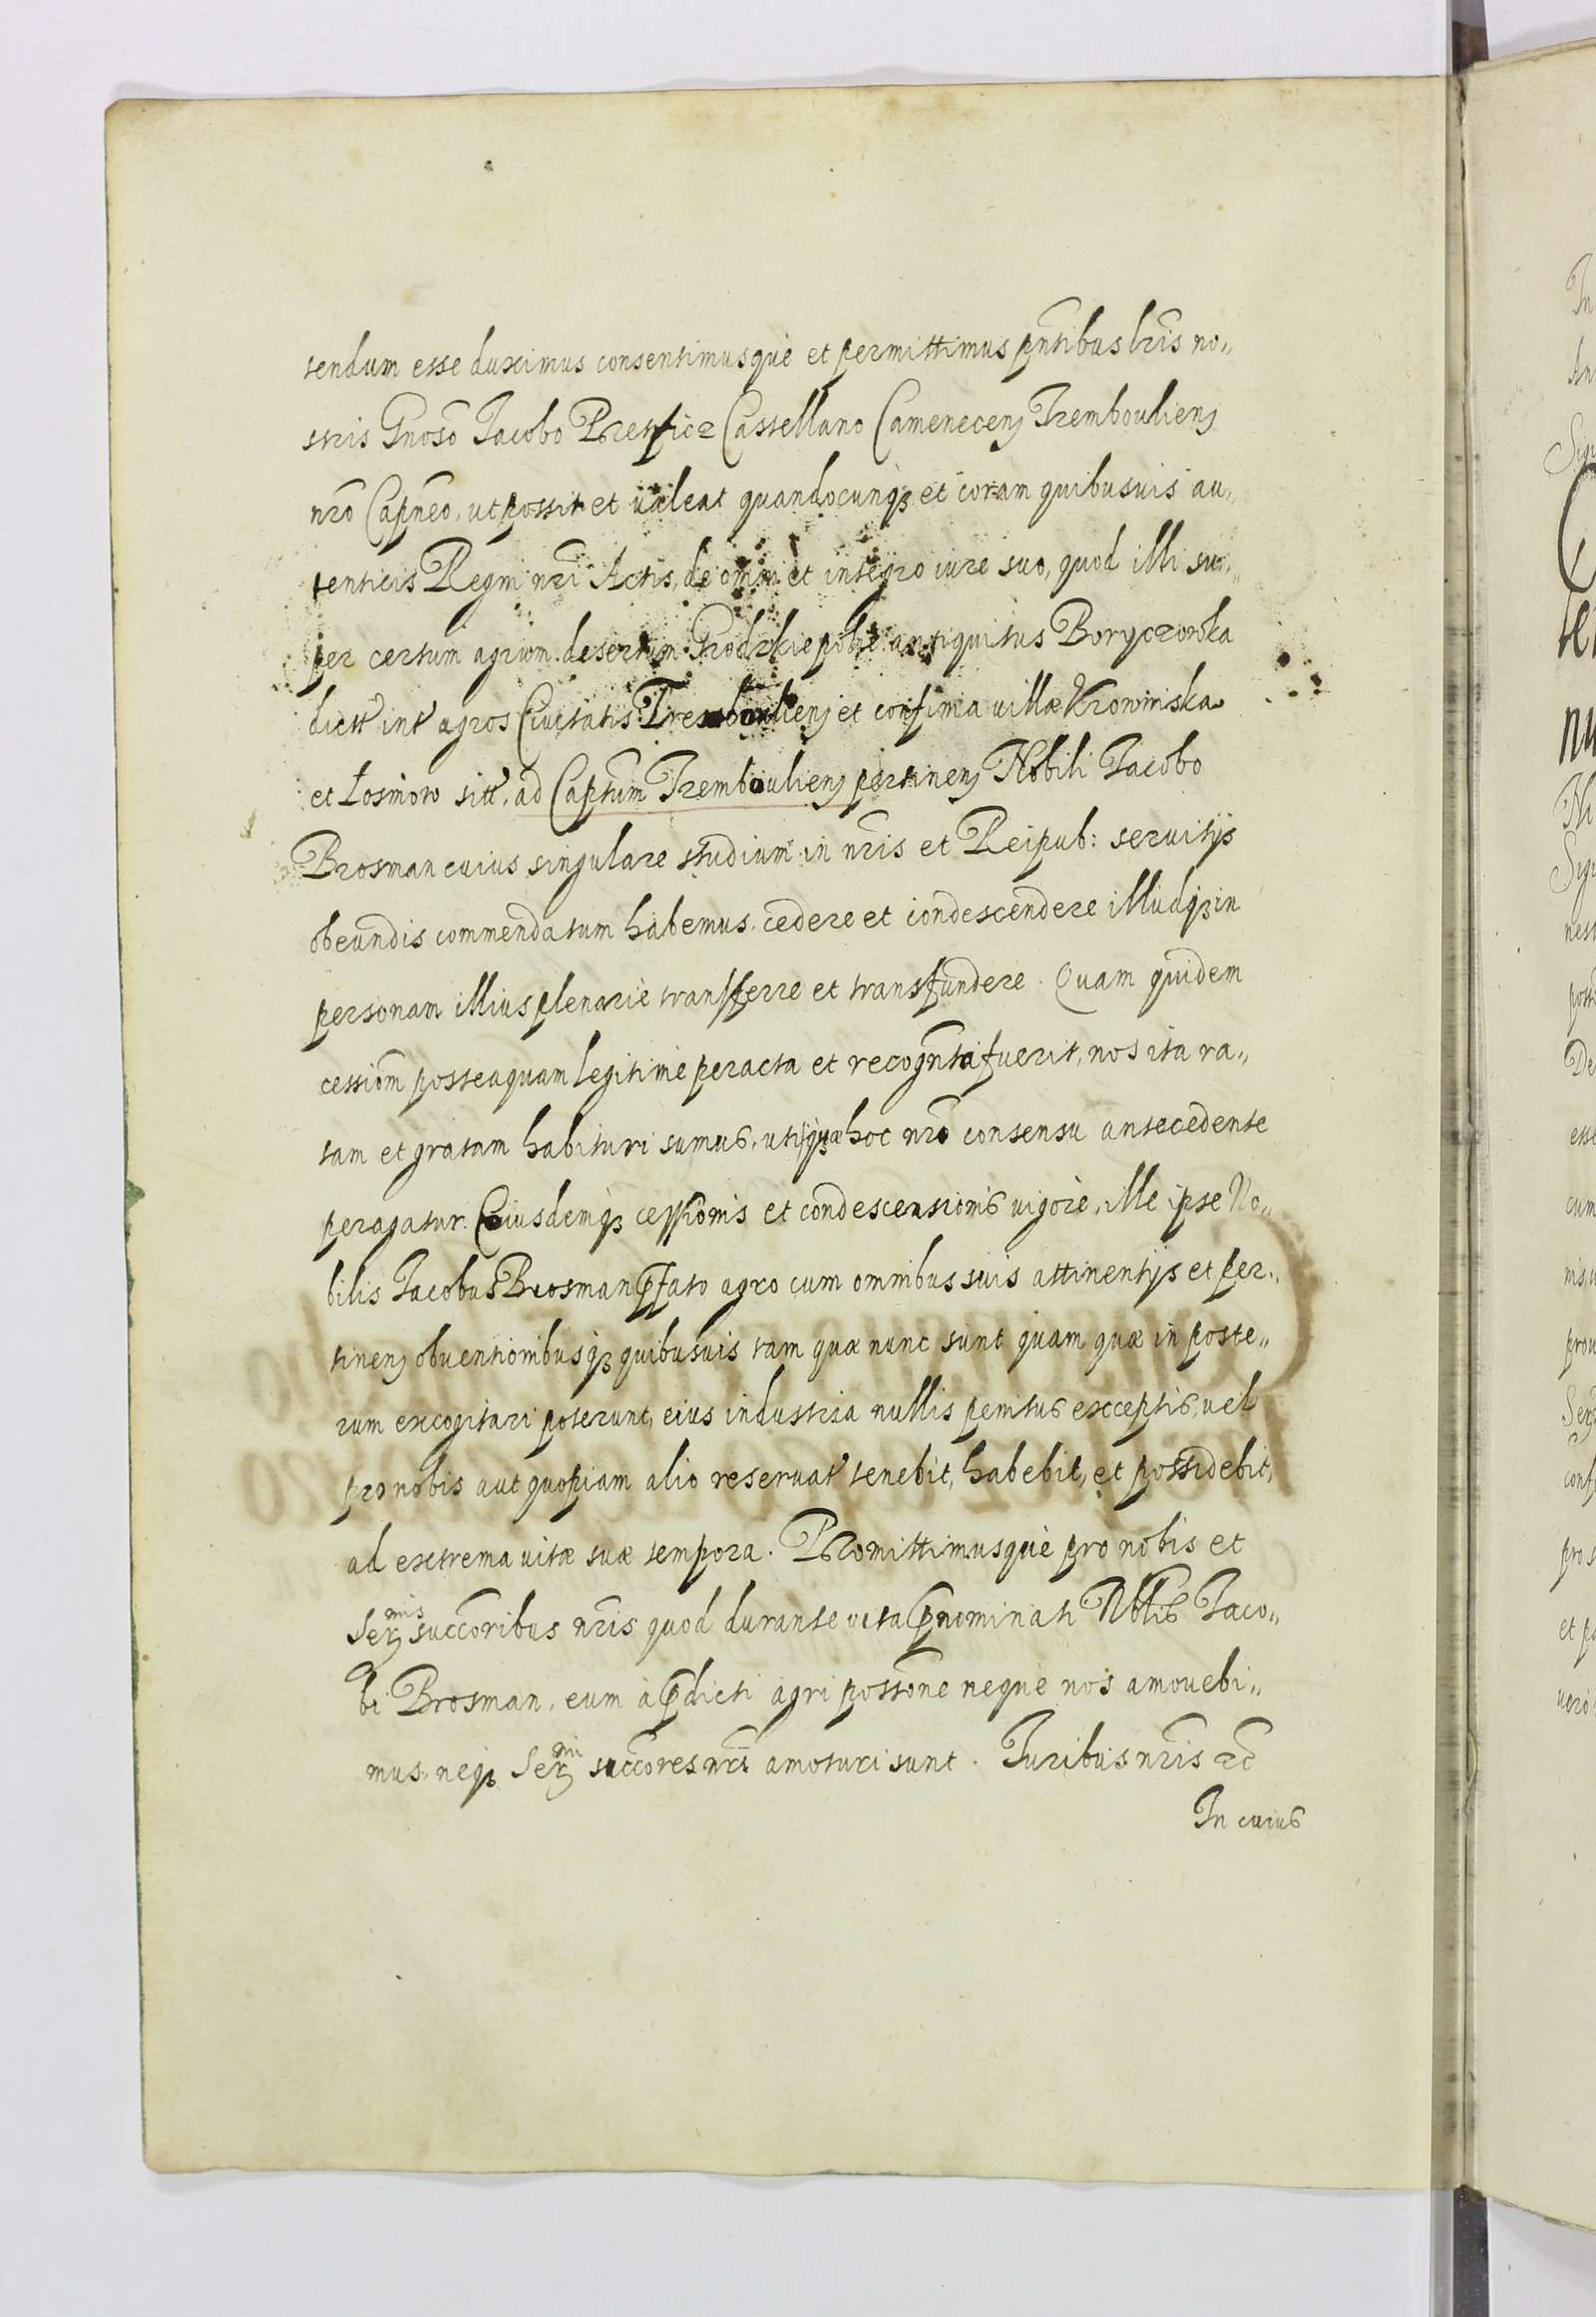 tendum esse duximus consentimusquè et permittimus pn̄tibus lr̄is no„
stris Gnoso Jacobo Pretficz Castellano Camenecens Trembouliens
nr̄o Capn̄eo, ut possit et ualeat quandocunq₃ et coram quibusuis au„
tenticis Regni nr̄i Actis, de omni et integro iure suo, quod illi su„
per certum agrum desertum Grodzkie polie antiquitus Boryczowka
dictt̓ int̓ agros Ciuitatis Trembouliens et confinia uillæ Krowinska
et Łosniow sitt̓, ad Capt̄um Trembouliens pertinens Nobili Jacobo
Brosman cuius singulare studium in nr̄is et Reipub: seruitÿs
obeundis commendatum habemus. cedere et condescendere illudq₃ in
personam illius plenariè transferre et transfundere. Quam quidem
cessiōm posteaquam legitimè peracta et recogn̄ta fuerit, nos ita ra„
tam et gratam habituri sumus, uti quæ hoc nr̄o consensu antecedente
peragatur. Eiusdemq₃ cessionis et condescensionis uigore, ille ipse No„
bilis Jacobus Brosman p̄fato agro cum omnibus suis attinentÿs et per„
tinens obuentionibusq₃ quibusuis tam quæ nunc sunt quam quæ in poste„
rum excogitari poterunt, eius industria nullis penitus exceptis, uel
pro nobis aut quopiam alio reseruat̓ tenebit, habebit, et possidebit,
ad extrema uitæ suæ tempora. Promittimusquè pro nobis et
Serᵐⁱˢ succ̄oribus nr̄is quod durante uita p̄nominati Nbl̄is Jaco„
bi Brosman, eum à p̄dicti agri possōne nequè nos amouebi„
mus neq₃ Serᵐⁱ succ̄ores nr̄i amoturi sunt. Juribus nr̄is rc̄
In cuius